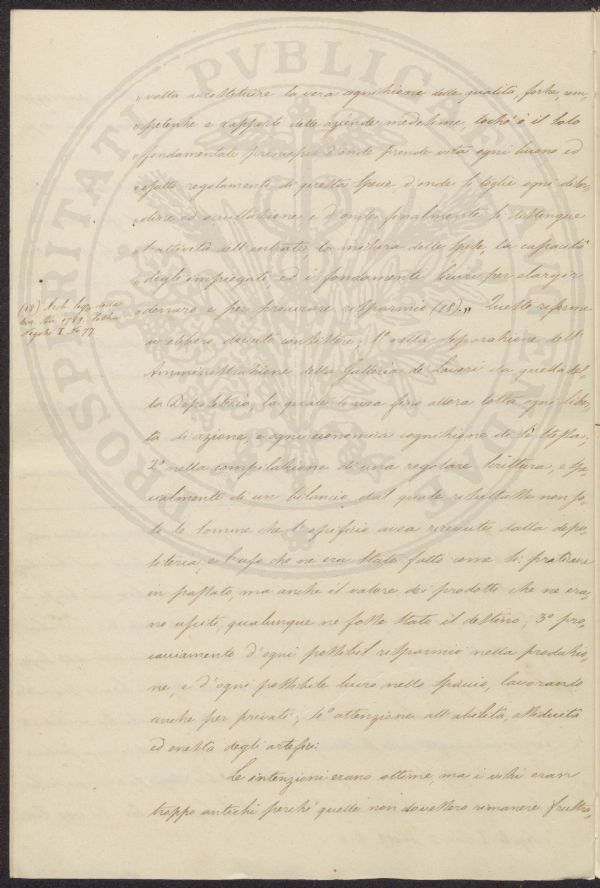 „ volta a costituire la vera cognizione delle qualità, forze, com-
„ petenze e rapporti delle aziende medesime, lochè è il solo
„ fondamentale principio d'onde prende vita ogni buono ed
„ esatto regolamento di questa specie, d'onde si toglie ogni disor-
„ dine ed occultazione e d'onde finalmente si distingue
„ l'attività dell'entrate, la misura delle spese, la capacità
„ degli impiegati ed i fondamenti sicuri per elargir
„ denaro e per procurare risparmio (18).„ Queste riforme
avrebbero dovuto consistere; 1° nella separazione dell'
Amministrazione della Galleria de' Lavori da quella del-
la Depositeria, la quale le avea fino allora tolta ogni liber-
tà di azione, e ogni economica cognizione di sè stessa,
2° nella compilazione di una regolare scrittura, e spe-
cialmente di un bilancio, dal quale risultasse non so-
lo le somme che l'opificio avea ricevute dalla depo-
siteria, e l'uso che ne era stato fatto come si praticava
in passato, ma anche il valore dei prodotti che ne era-
no usciti, qualunque ne fosse stato il destino, 3° pro-
cacciamento d'ogni possibil risparmio nella produzio-
ne, e d'ogni possibile lucro nello spaccio, lavorando
anche per privati; 4° attenzione all'abilità, assiduità
ed onestà degli artefici.
Le intenzioni erano ottime, ma i vizi eran
troppo antichi perchè quelle non dovettero rimanere frustra-
(18) Arch.
1789.
I. 77.
PROSPERITATI PVBLICAE